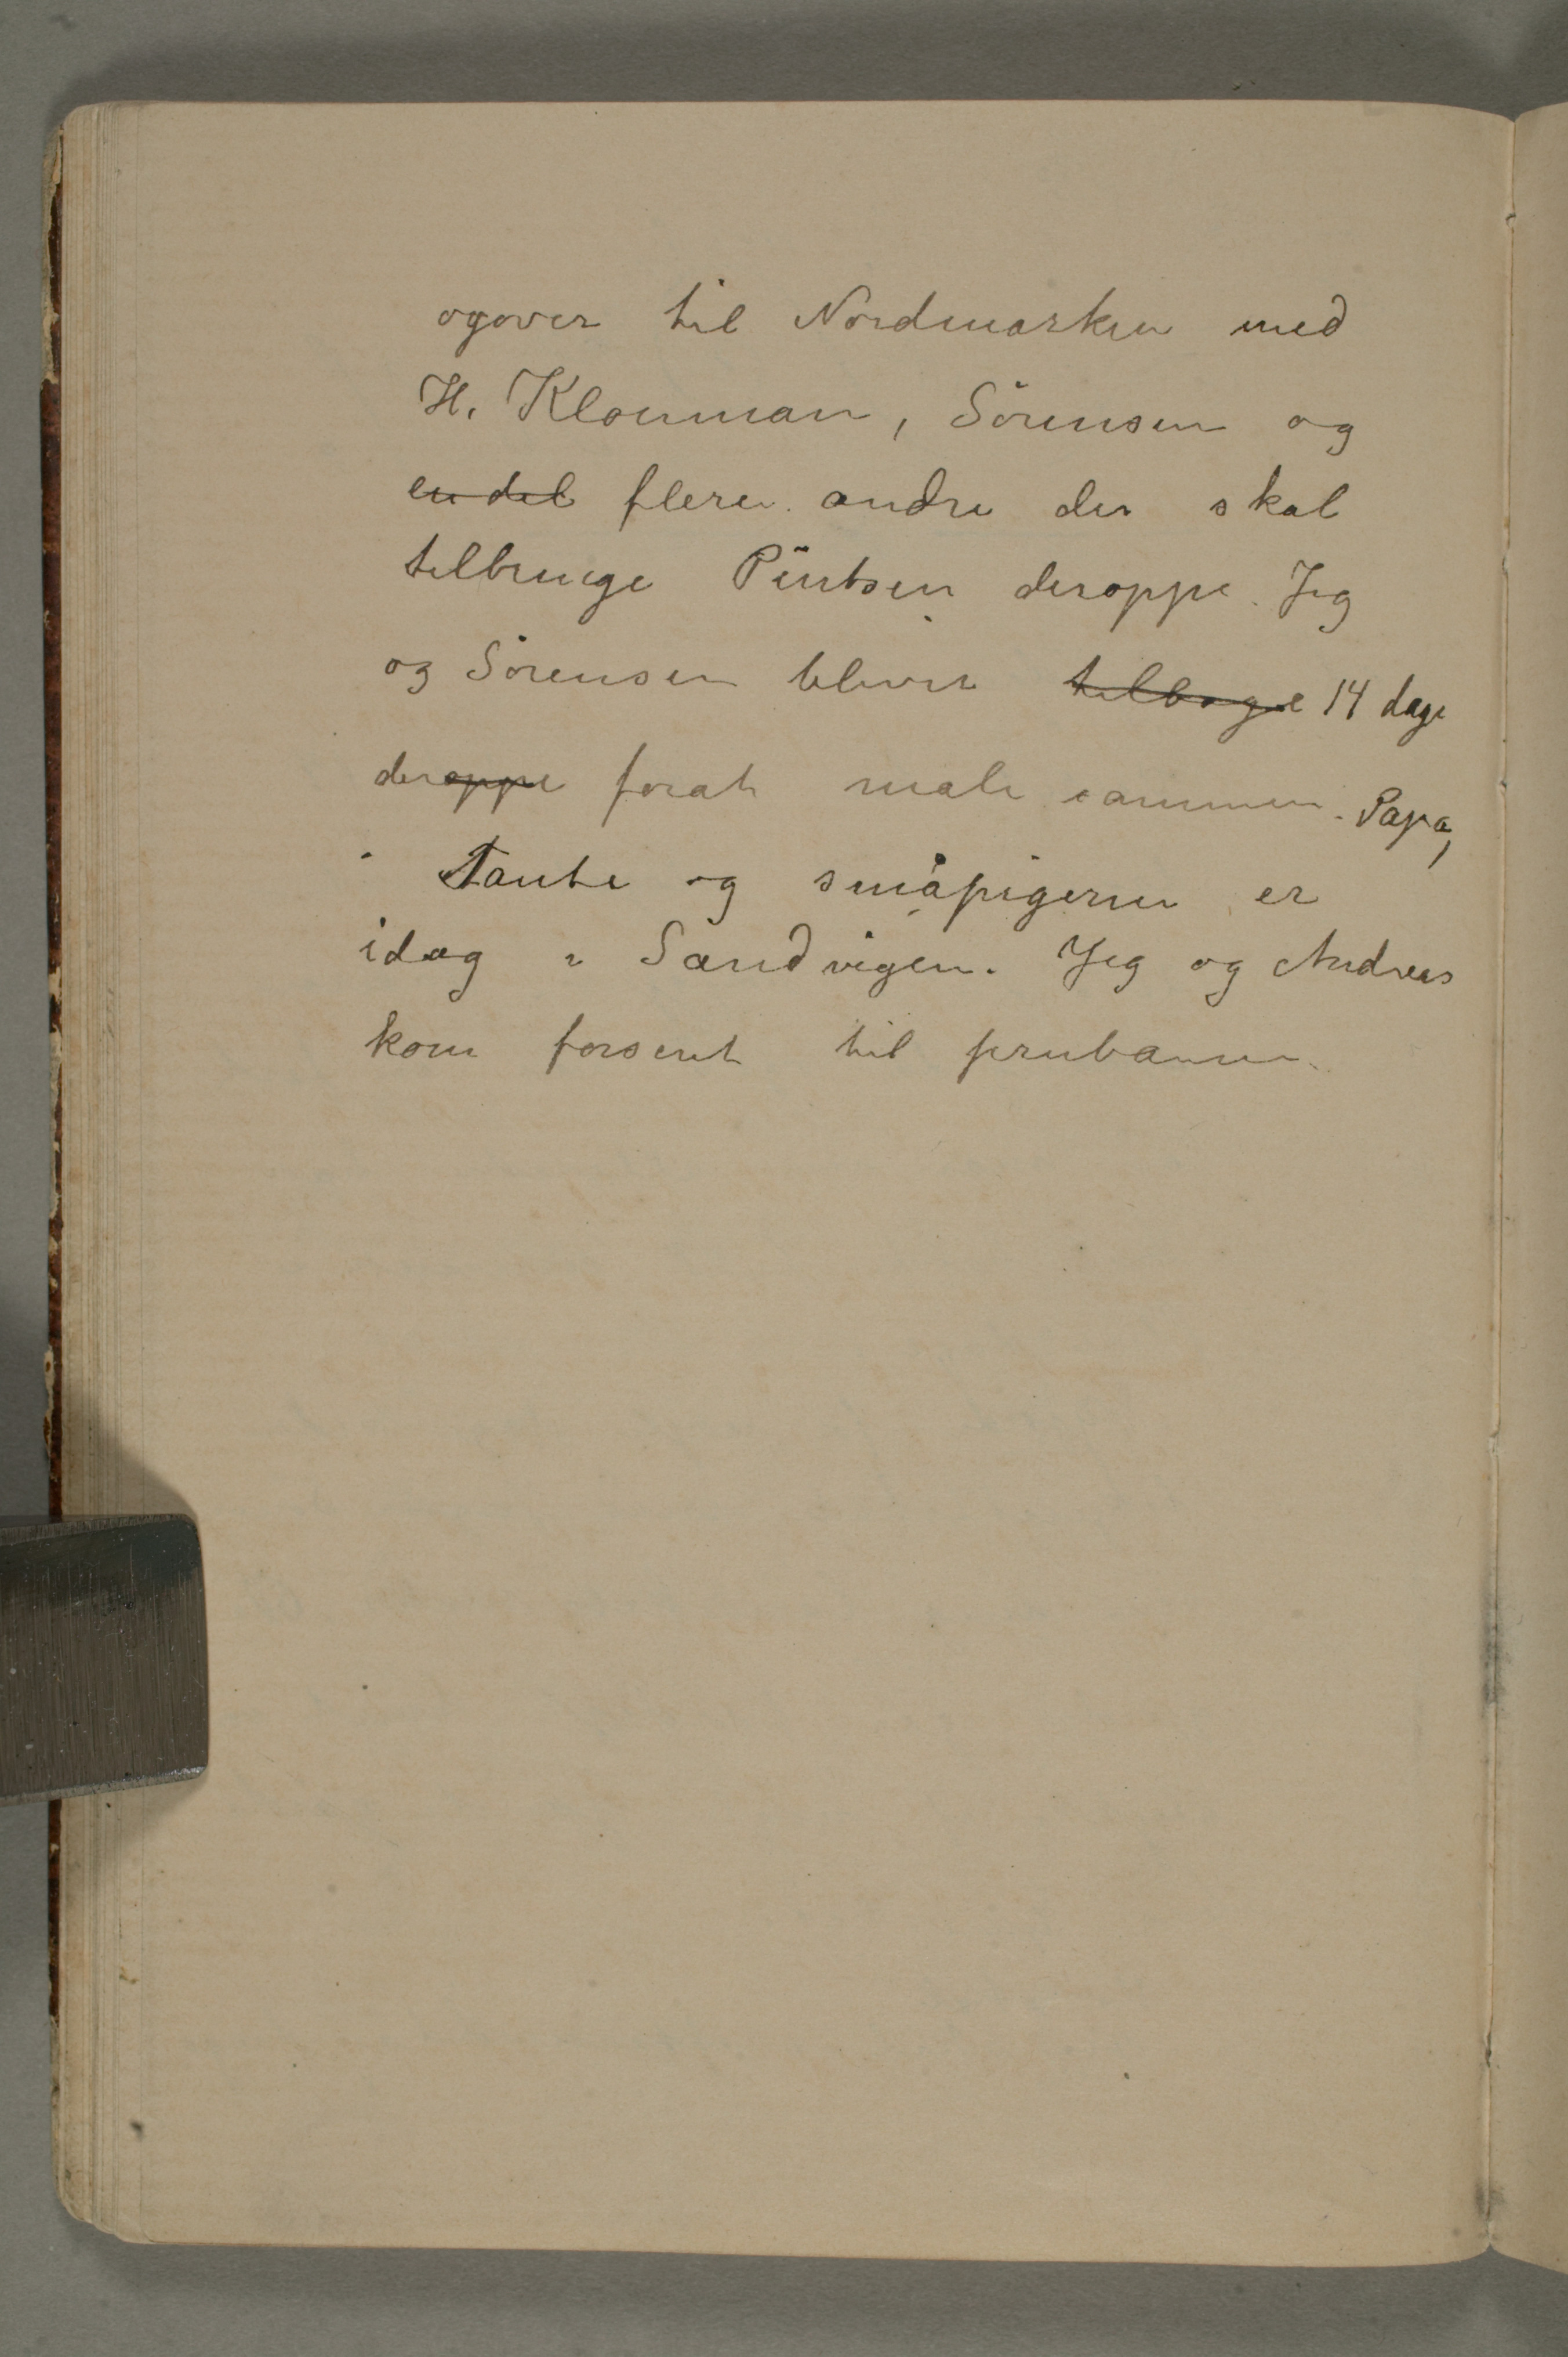 ogover til Nordmarken med
H. Klouman, Sörensen og
en del flere andre der skal
tilbringe Pintsen deroppe. Jeg
og Sörensen bliver tilbage 14 dage
deroppe forat male sammen. Papa,
Tante og småpigerne er
idag i Sandvigen. Jeg og Andreas
kom forsent til jernbanen.